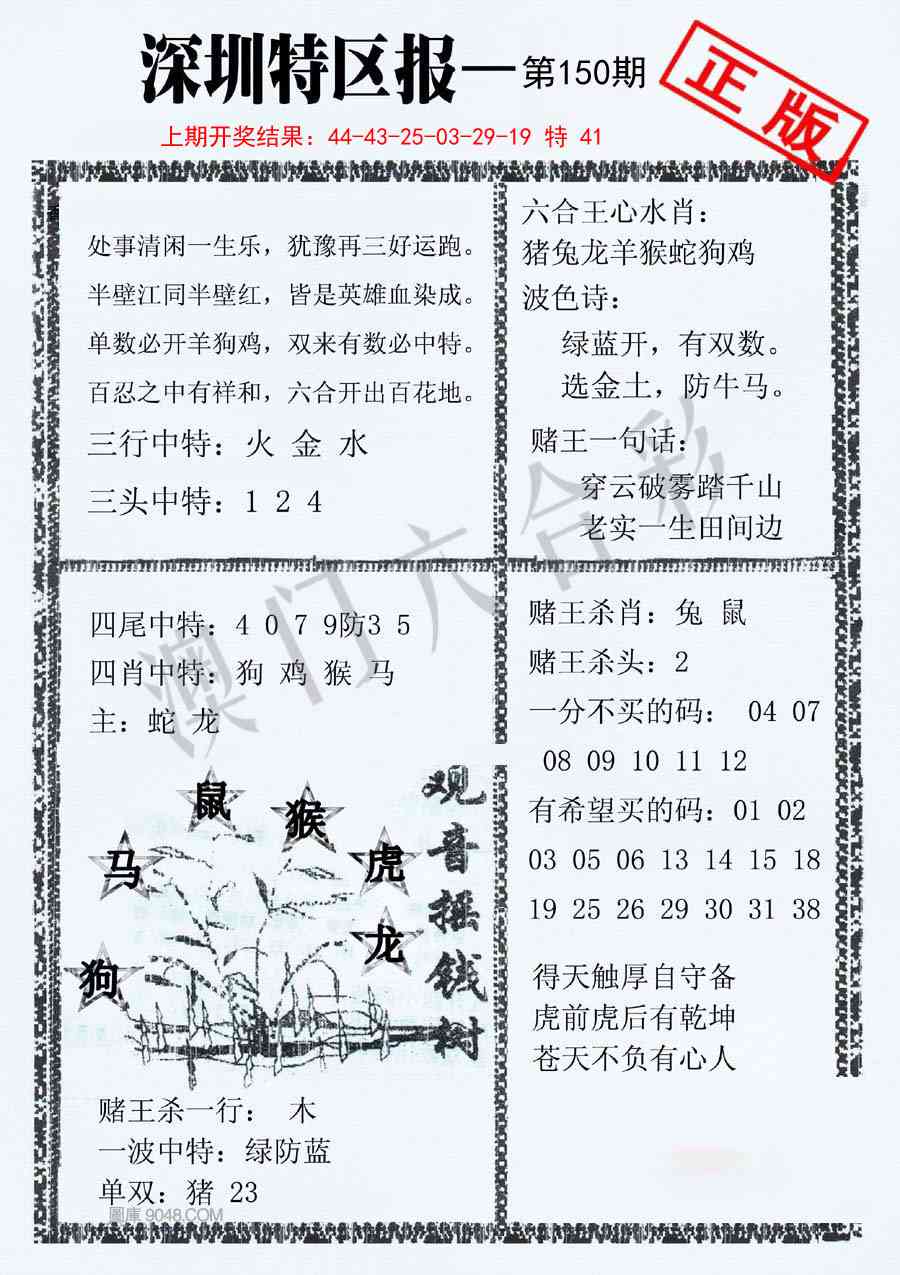 深圳特区报—第150期
正版
上期开奖结果：44-43-25-03-29-19 特 41
处事清闲一生乐，犹豫再三好运跑。
半壁江同半壁红，皆是英雄血染成。
单数必开羊狗鸡，双来有数必中特。
百忍之中有祥和，六合开出百花地。
三行中特：火 金 水
三头中特：1 2 4
六合王心水肖：
猪兔龙羊猴蛇狗鸡
波色诗：
绿蓝开，有双数。
选金土，防牛马。
赌王一句话：
穿云破雾踏千山
老实一生田间边
澳门六合彩
四尾中特：4 0 7 9防3 5
四肖中特：狗 鸡 猴 马
主：蛇 龙
鼠
猴
马
虎
龙
狗
观音摇钱树
赌王杀一行： 木
一波中特：绿防蓝
单双：猪 23
圖庫 9048.COM
赌王杀肖：兔 鼠
赌王杀头：2
一分不买的码： 04 07
08 09 10 11 12
有希望买的码：01 02
03 05 06 13 14 15 18
19 25 26 29 30 31 38
得天触厚自守备
虎前虎后有乾坤
苍天不负有心人